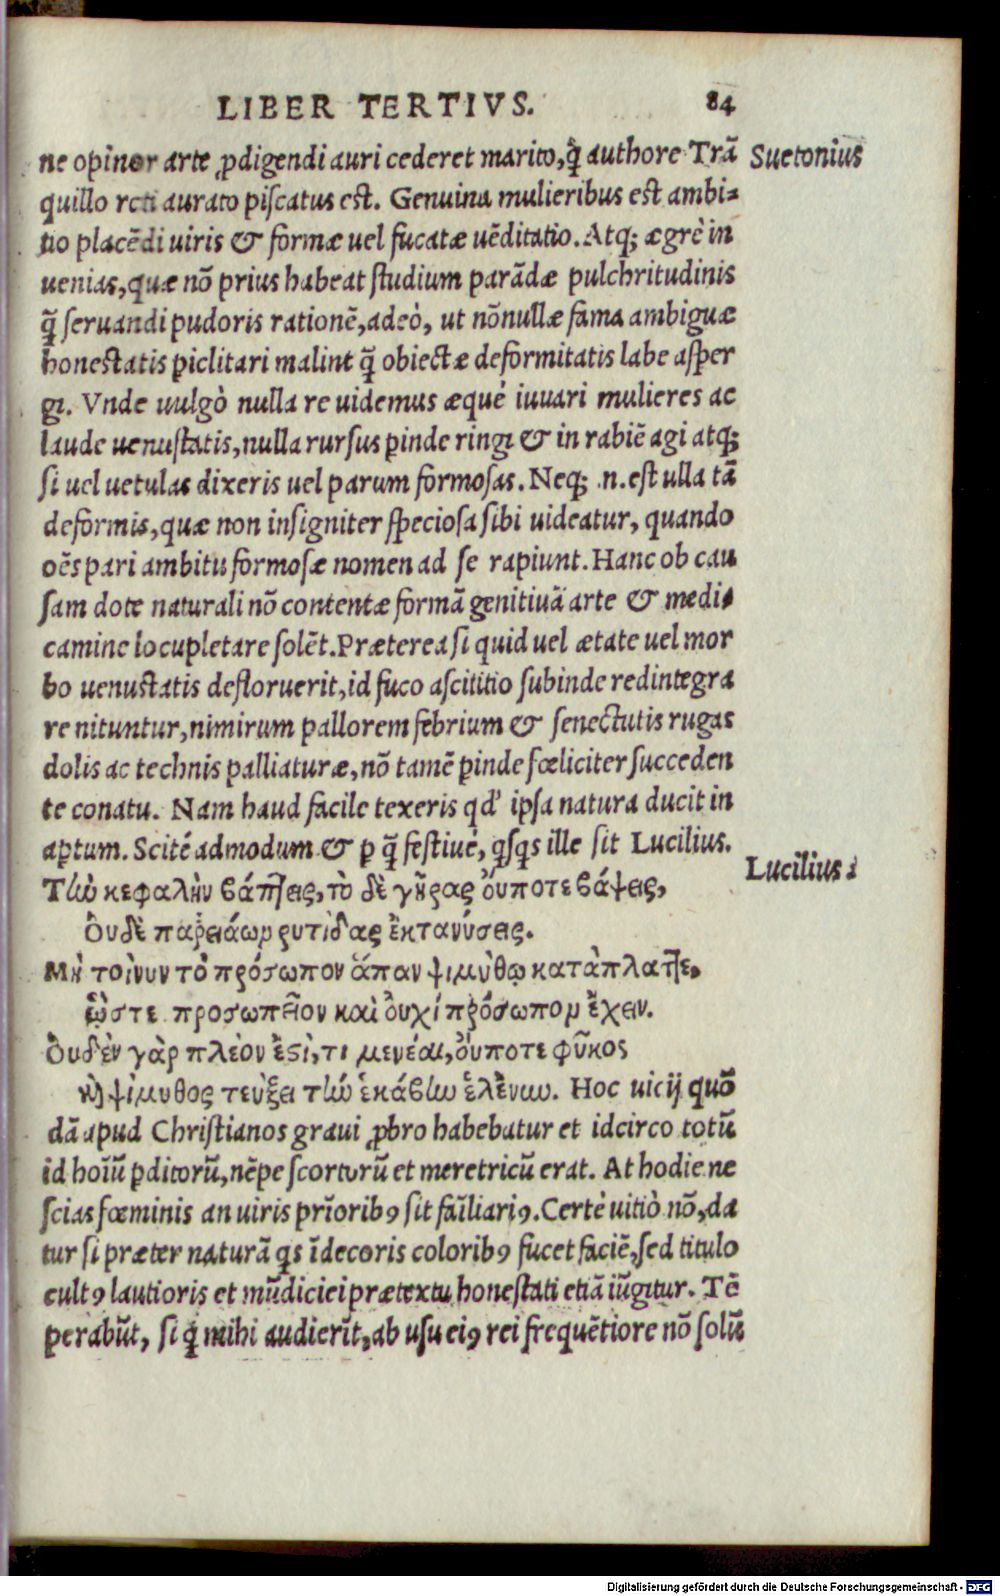 LIBER TERTIVS. 84
ne opinor arte ꝓdigendi auri cederet marito, q̃ authore Trã Suetonius
quillo reti aurato piſcatus eſt. Genuina mulieribus eſt ambi⸗
tio placẽdi uiris & formæ uel fucatæ uẽditatio. Atq; ægrè in
uenias, quæ nõ prius habeat ſtudium parãdæ pulchritudinis
q̃ ſeruandi pudoris rationẽ, adeò, ut nõnullæ fama ambiguæ
honeſtatis ꝑiclitari malint q̃ obiectæ deformitatis labe aſper
gi. Vnde uulgò nulla re uidemus æquè iuuari mulieres ac
laude uenuſtatis, nulla rurſus ꝑinde ringi & in rabiẽ agi atq;
ſi uel uetulas dixeris uel parum formoſas. Neq; .n. eſt ulla tã
deformis, quæ non inſigniter ſpecioſa ſibi uideatur, quando
oẽs pari ambitu formoſæ nomen ad ſe rapiunt. Hanc ob cau
ſam dote naturali nõ contentæ formã genitiuã arte & medi⸗
camine locupletare ſolẽt. Præterea ſi quid uel ætate uel mor
bo uenuſtatis defloruerit, id fuco aſcititio ſubinde redintegra
re nituntur, nimirum pallorem febrium & ſenectutis rugas
dolis ac technis palliaturæ, nõ tamẽ ꝑinde fœliciter ſucceden
te conatu. Nam haud facile texeris qd' ipſa natura ducit in
aptum. Scitè admodum & ꝑ q̃ feſtiuè, qſqs ille ſit Lucilius.
Lucilius :
Τὼ κεφαλὴν βάπτεις, τὸ δὲ γῆρας ὄυποτε βάψεις,
Ὀυδὲ παρειάων ῥυτίδας ἐκτανύσεις.
Μὴ τοίνυν τὸ πρόσωπον ἅπαν ψιμύθῳ κατάπλαττε,
ὥστε προσωπεῖον καὶ ὀυχί πρόσωπον ἔχειν.
Ὀυδὲν γὰρ πλέον ἐστὶ, τι μενέαι, ὄυποτε φῦκος
καὶ ψίμυθος τεύξει τὼ ἑκάβω ἑλένω. Hoc uicij quõ
dã apud Chriſtianos graui ꝓbro habebatur et idcirco totũ
id hoiũ ꝑditorũ, nẽpe ſcortorũ et meretricũ erat. At hodie ne
ſcias fœminis an uiris prĩoribꝰ ſit faĩliariꝰ. Certè uitiò nõ, da
tur ſi præter naturã qs ĩdecoris coloribꝰ fucet faciẽ, ſed titulo
cultꝰ lautioris et mũdiciei prætextu honeſtati etiã iũgitur. Tẽ
perabũt, ſi q mihi audierĩt, ab uſu eiꝰ rei frequẽtiore nõ ſolũ
Digitalisierung gefördert durch die Deutsche Forschungsgemeinschaft - DFG